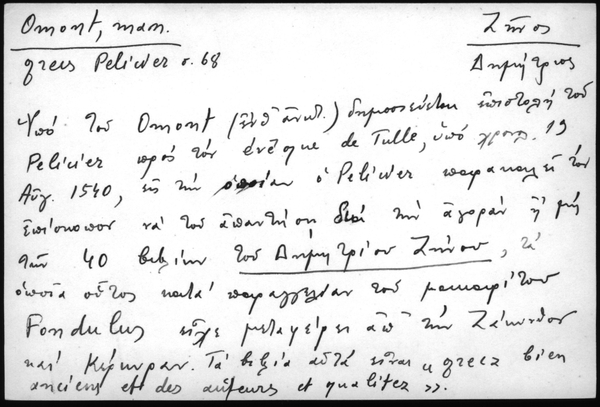 Omont, man.
grecs Pelicier σ. 68
Ζῆνος
Δημήτριος
Ὑπό τοῦ Omont (ἐνθ' ἀνωτ.) δημοσιεύεται ἐπιστολή τοῦ
Pelicier πρός τόν évêque de Tulle, ὑπό χρον. 19
Αὐγ. 1540, εἰς τήν ὁποίαν ὁ Pelicier παρακαλεῖ τόν
ἐπίσκοπον νά τοῦ ἀπαντήσῃ διά τήν ἀγοράν ἤ μή
τῶν 40 βιβλίων τοῦ Δημητρίου Ζήνου, τά
ὁποῖα οὗτος κατά παραγγελίαν τοῦ μακαρίτου
Fondulus εἶχε μεταφέρει ἀπό τήν Ζάκυνθον
καί Κέρκυραν. Τά βιβλία αὐτά εἶναι « grecz bien
anciens et des auteurs et qualitez ».